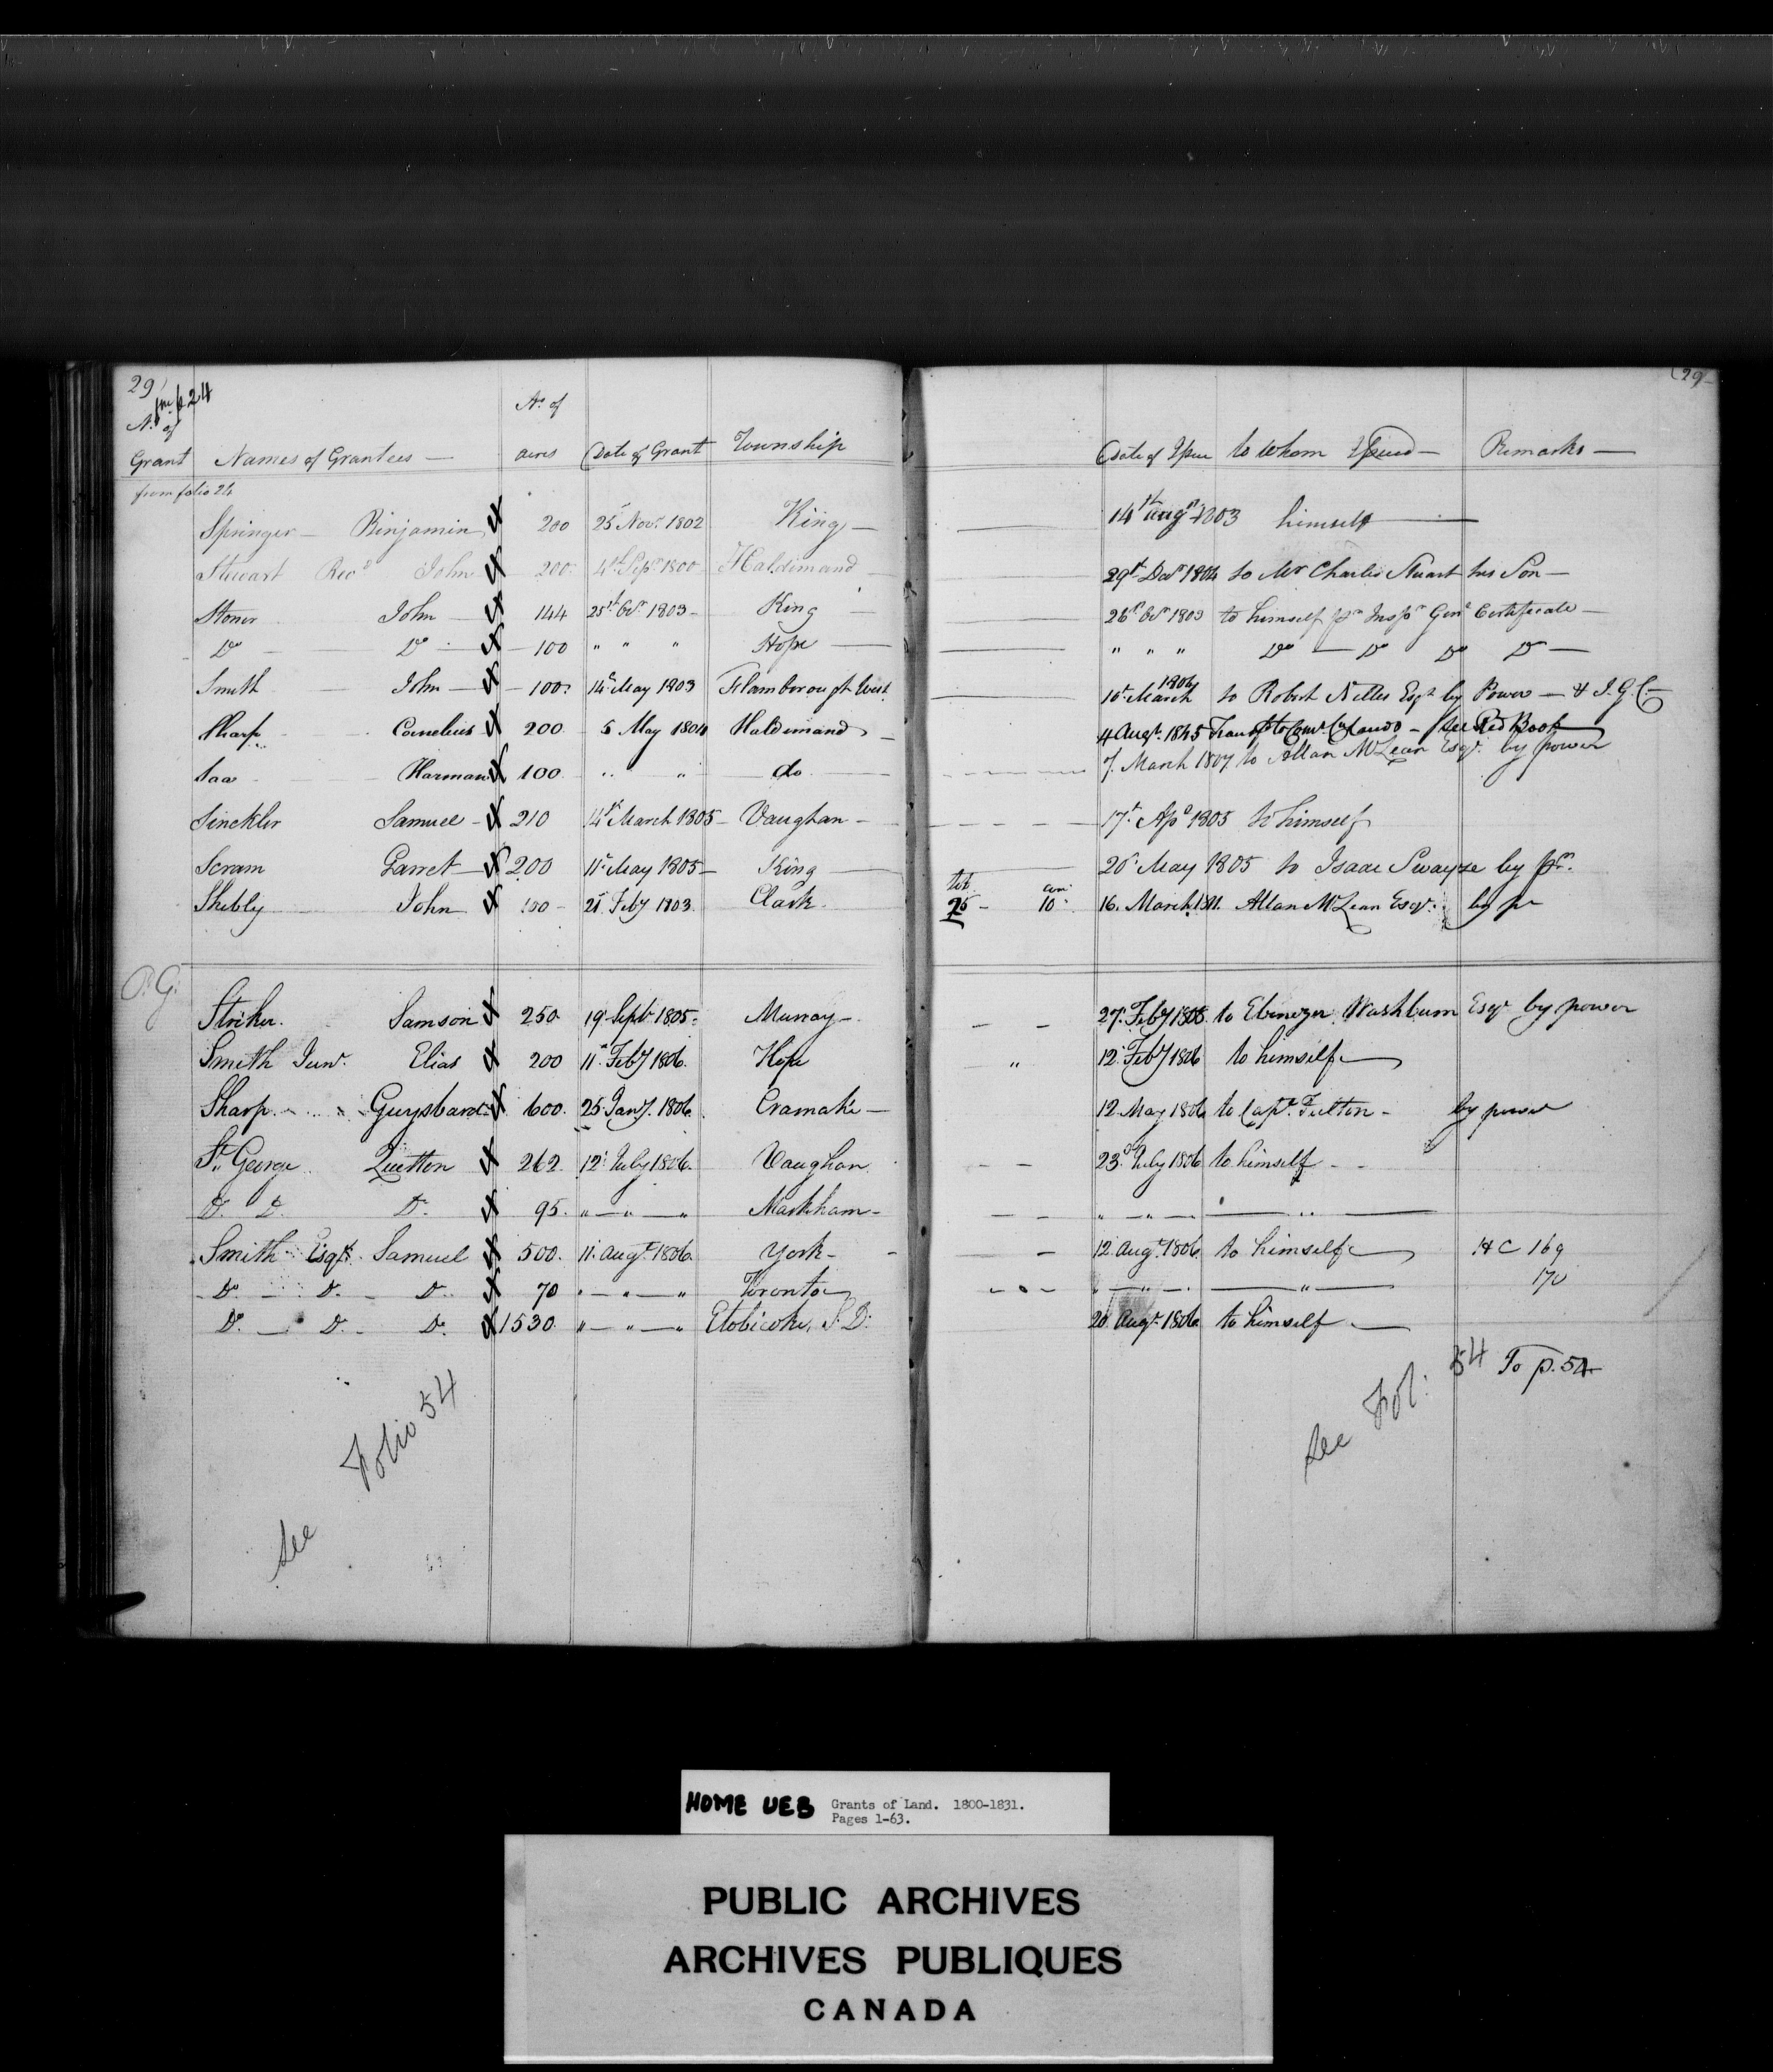 29
fm f 24
No. of
Grant Names of Grantees — No. of acres Date of Grant Township Date of Issue to whom Issued — Remarks —
29
from folio 24
Springer — Binjamin 200 25 Novr 1802 King — 14th augst 1803 himself —
Stewart Revd John 200 4th Sepr 1800 Haldimand 29th Decr 1804 to Mr Charles Stuart his Son —
Stoner John — 144 25th Octr 1803 — King 26th Octr 1803 to himself pr Inspr Genl Certificate —
Do Do 100 " " " Hope " " " Do — Do Do Do —
Smith John — 100 14th May 1803 Flamborough West 10th March 1804 to Robert Nelles Esqr by Power — & I.G.C.
Sharp Cornelius 200 5 May 1804 Haldimand 4 Augt. 1845 to Comr Cn Lands — see Red Book
Saa Harman 100 " " do 7. March 1807 to Allan McLean Esqr. by power
Sinckler Samuel — 210 14th March 1805 — Vaughan — 17th Apl 1805 to himself
Scram Garret — 200 11th May 1805 — King 20th May 1805 to Isaac Swayze by pr.
Shibly John 100 — 21 Feby 1803 Clark lot 25 — con: 10 16. March 1811. Allan McLean Esqr. by pr
P.G.
Striker. Samson 250 19 Septr 1805 Murray — 27. Feby 1806 to Ebenezer Washburn Esqr by power
Smith Junr. Elias 200 11 Feby 1806. Hope " 12 Feby 1806 to himself
Sharp Guysbard 600. 25 Jany. 1806. Cramahe — 12. May 1806 to Capt. Fulton — by power
St. George Quetton 262. 12 July 1806. Vaughan 23d July 1806 to himself
D. D. D. 95. " — " — " Markham —
Smith Esqr. Samuel 500. 11. augt. 1806. York — 12 Augt. 1806 to himself H C 169
D. D. D. 70 " — " — " Toronto 170
D. D. D. 1530. " — " — " Etobicoke, S.D. 20. Augt. 1806 to himself
See Folio 54
see Fol: 54 To p. 54
HOME UEB Grants of Land. 1800-1831.
Pages 1-63.
PUBLIC ARCHIVES
ARCHIVES PUBLIQUES
CANADA